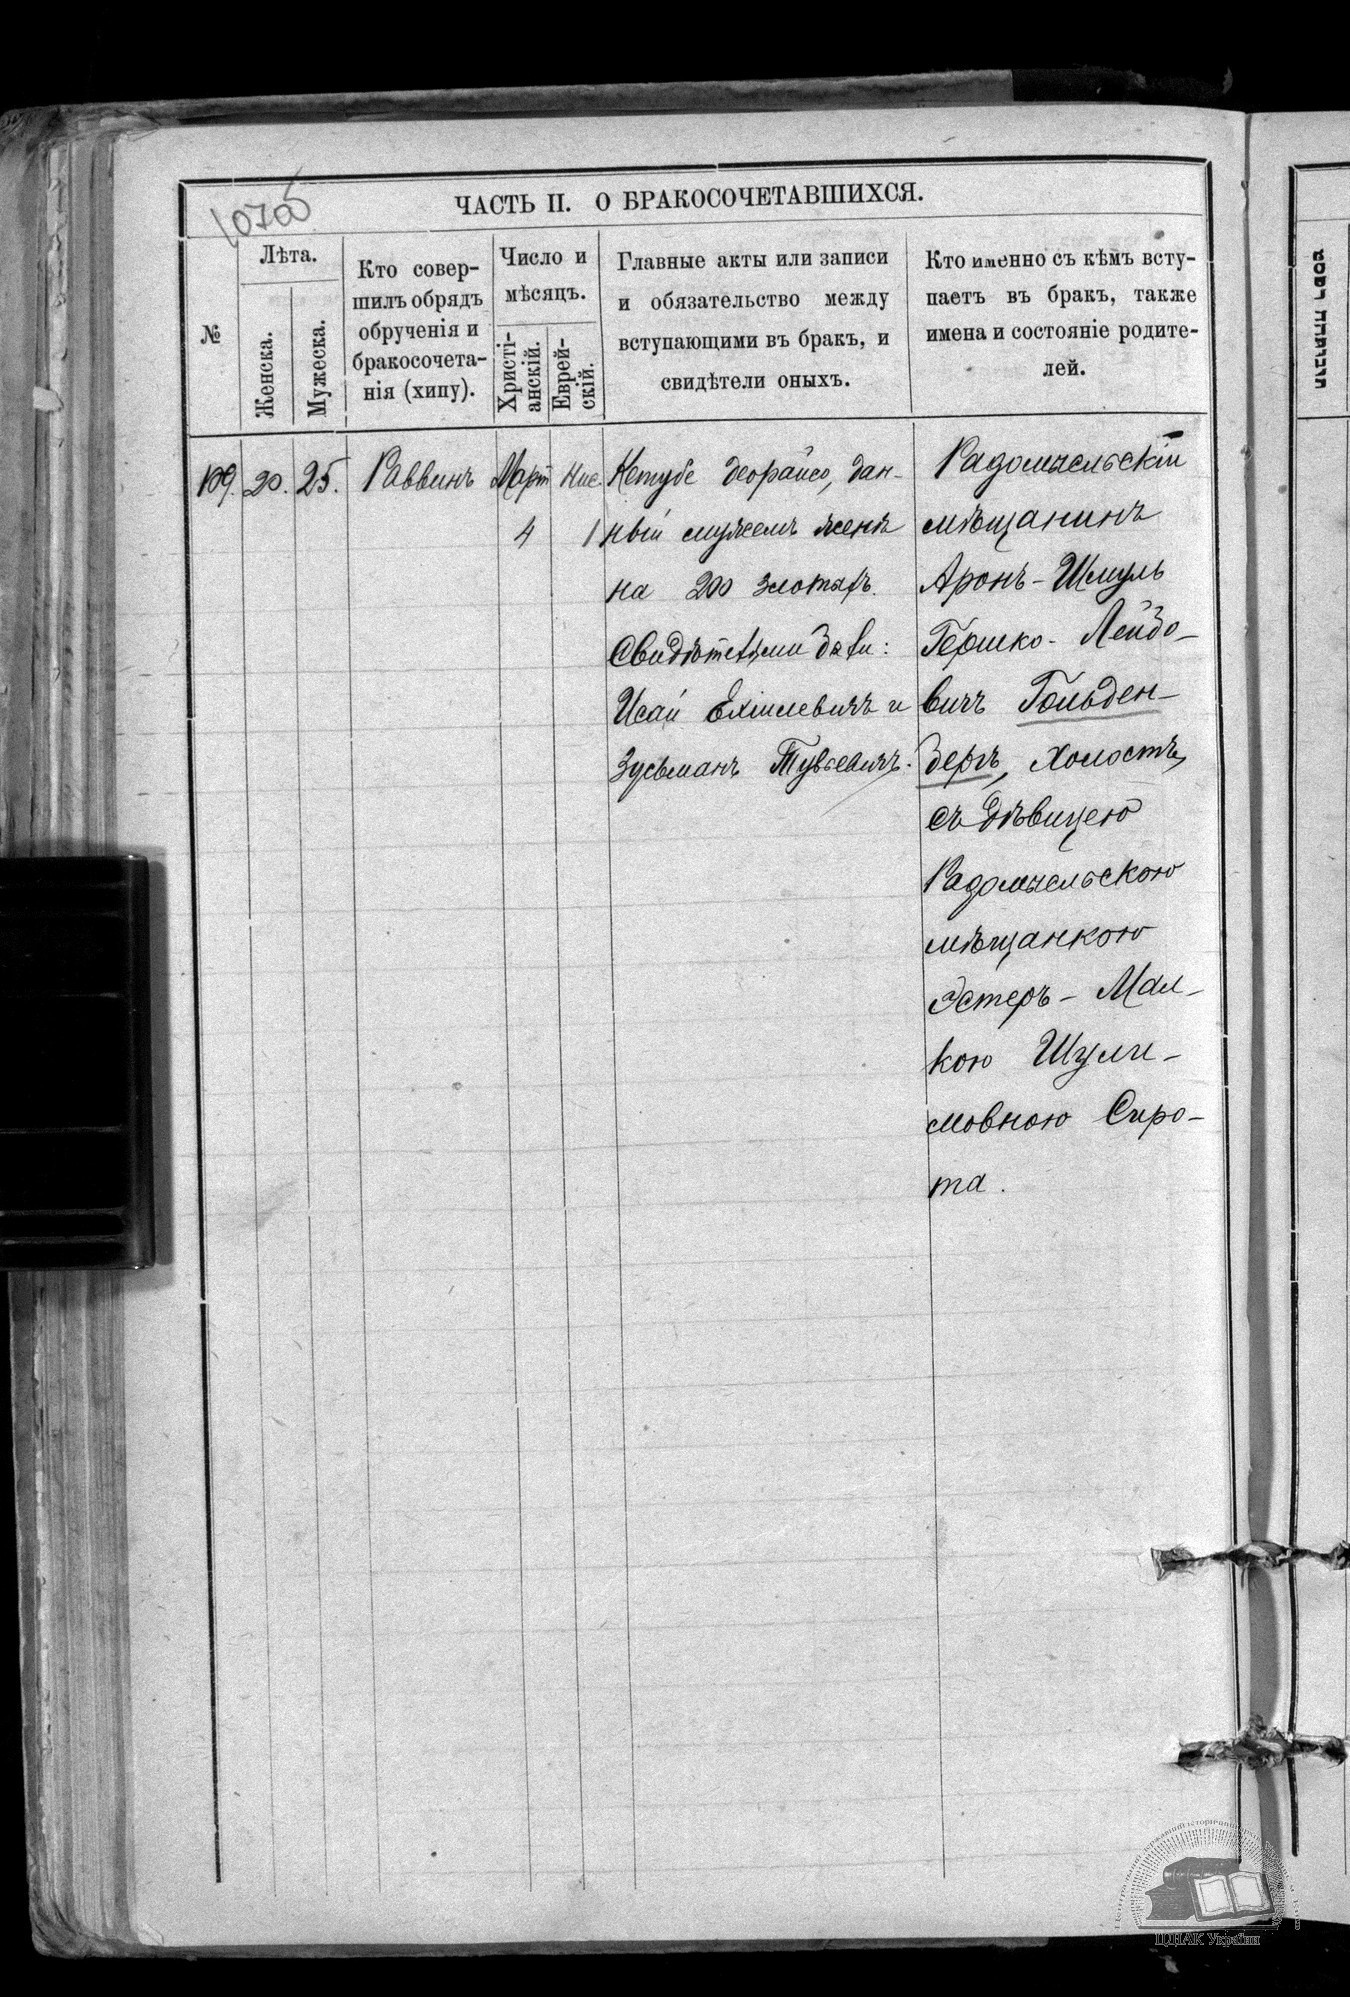 ЧАСТЬ II. О БРАКОСОЧЕТАВШИХСЯ.
№
Лѣта.
Женска.
Мужеска.
Кто совер-
шилъ обрядъ
обрученія и
бракосочета-
нія (хипу).
Число и
мѣсяцъ.
Христі-
анскій.
Еврей-
скій.
Главные акты или записи
и обязательство между
вступающими въ бракъ, и
свидѣтели оныхъ.
Кто именно съ кѣмъ всту-
паетъ въ бракъ, также
имена и состояніе родите-
лей.
109.
20.
25.
Раввинъ
Март
4
Нис.
1
Кетубе деорайсо, дан-
ный мужемъ женѣ
на 200 злотыхъ.
Свидѣтелями были:
Исай Ехіилевичъ и
Зусьманъ Тувьевичъ.
Радомысльскій
мѣщанинъ
Аронъ-Шмуль
Гершко-Лейзо-
вичъ Гольден-
бергъ, холостъ,
съ дѣвицею
Радомысльскою
мѣщанкою
Эстеръ-Мал-
кою Шули-
мовною Сиро-
та.
ЦДІАК України